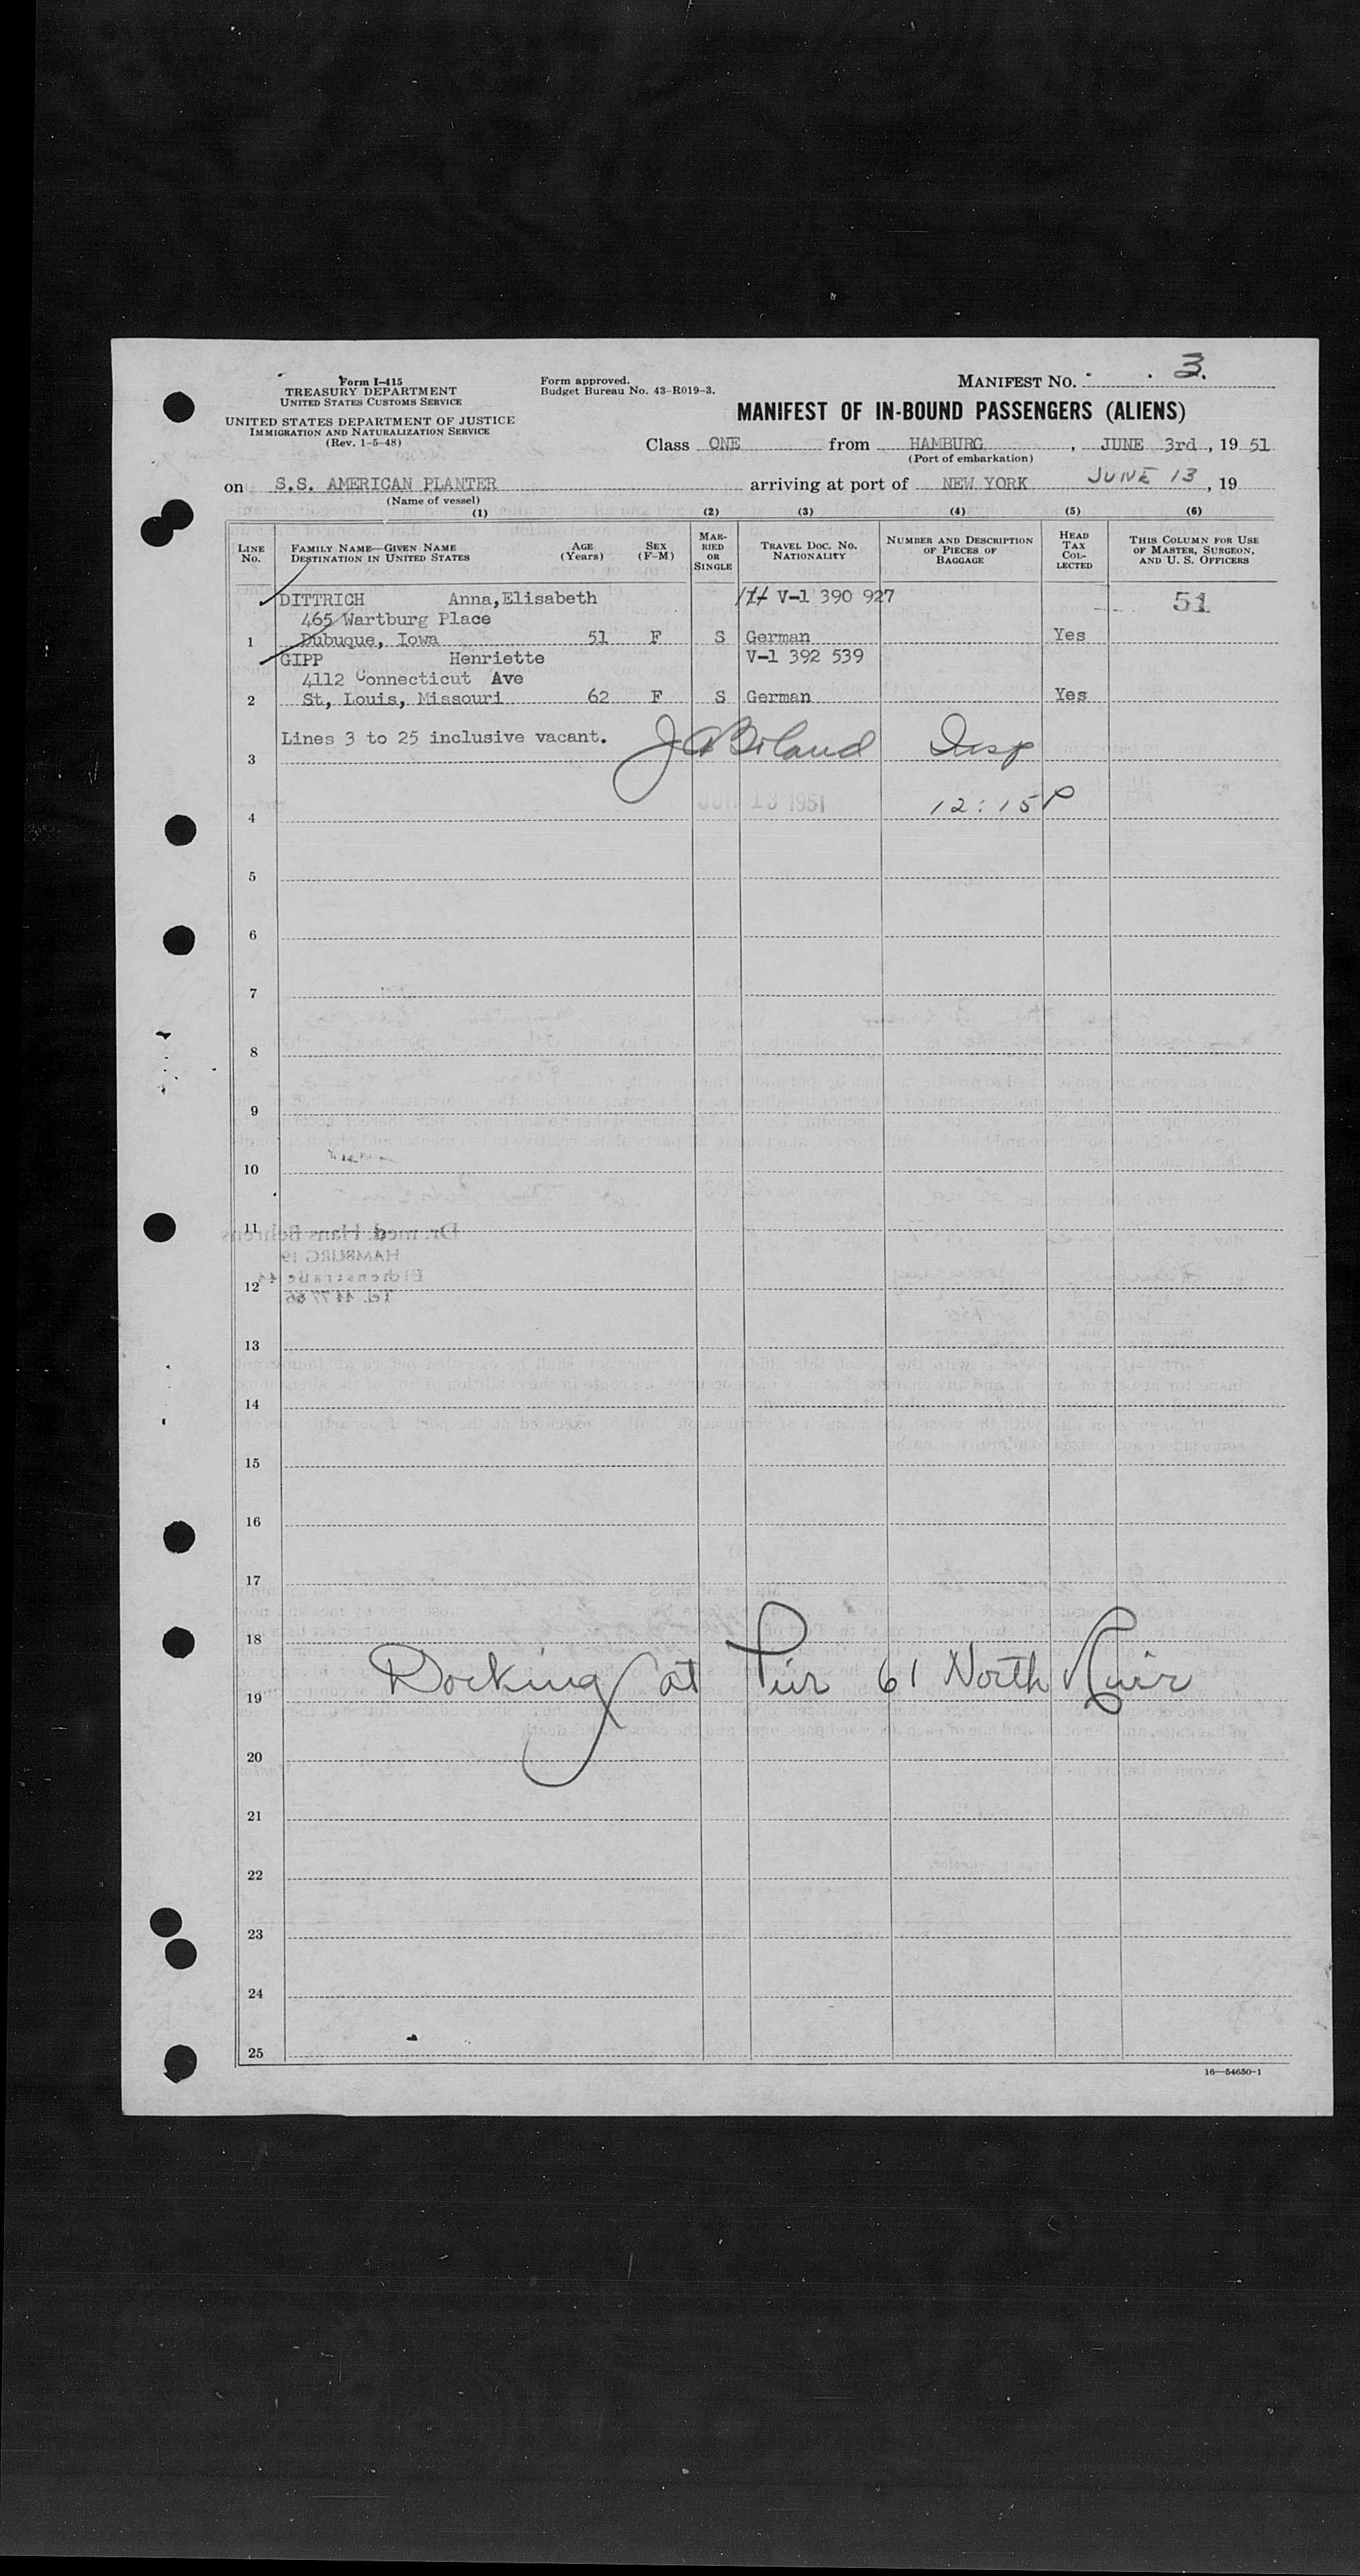 Form I-415
TREASURY DEPARTMENT
UNITED STATES CUSTOMS SERVICE
UNITED STATES DEPARTMENT OF JUSTICE
IMMIGRATION AND NATURALIZATION SERVICE
(Rev. 1-5-48)
Form approved.
Budget Bureau No. 43-R019-3.
MANIFEST NO. 3.
MANIFEST OF IN-BOUND PASSENGERS (ALIENS)
Class ONE from HAMBURG, JUNE 3rd, 19 51
(Port of embarkation)
on S.S. AMERICAN PLANTER arriving at port of NEW YORK JUNE 13, 19
(Name of vessel)
(1) (2) (3) (4) (5) (6)
LINE NO. FAMILY NAME—GIVEN NAME DESTINATION IN UNITED STATES AGE (Years) SEX (F-M) MARRIED OR SINGLE TRAVEL DOC. NO. NATIONALITY NUMBER AND DESCRIPTION OF PIECES OF BAGGAGE HEAD TAX COLLECTED THIS COLUMN FOR USE OF MASTER, SURGEON, AND U. S. OFFICERS
DITTRICH Anna,Elisabeth V-1 390 927 51
465 Wartburg Place
1 Dubuque, Iowa 51 F S German Yes
GIPP Henriette V-1 392 539
4112 Connecticut Ave
2 St, Louis, Missouri 62 F S German Yes
Lines 3 to 25 inclusive vacant. J A Boland Insp
3
JUN 13 1951 12:15 P
4
5
6
7
8
9
10
11
Dr. med. Hans Behrens
HAMBURG 19
Eichenstraße 44
12
Tel. 44 77 66
13
14
15
16
17
18
Docking at Pier 61 North River
19
20
21
22
23
24
25
16—54650-1